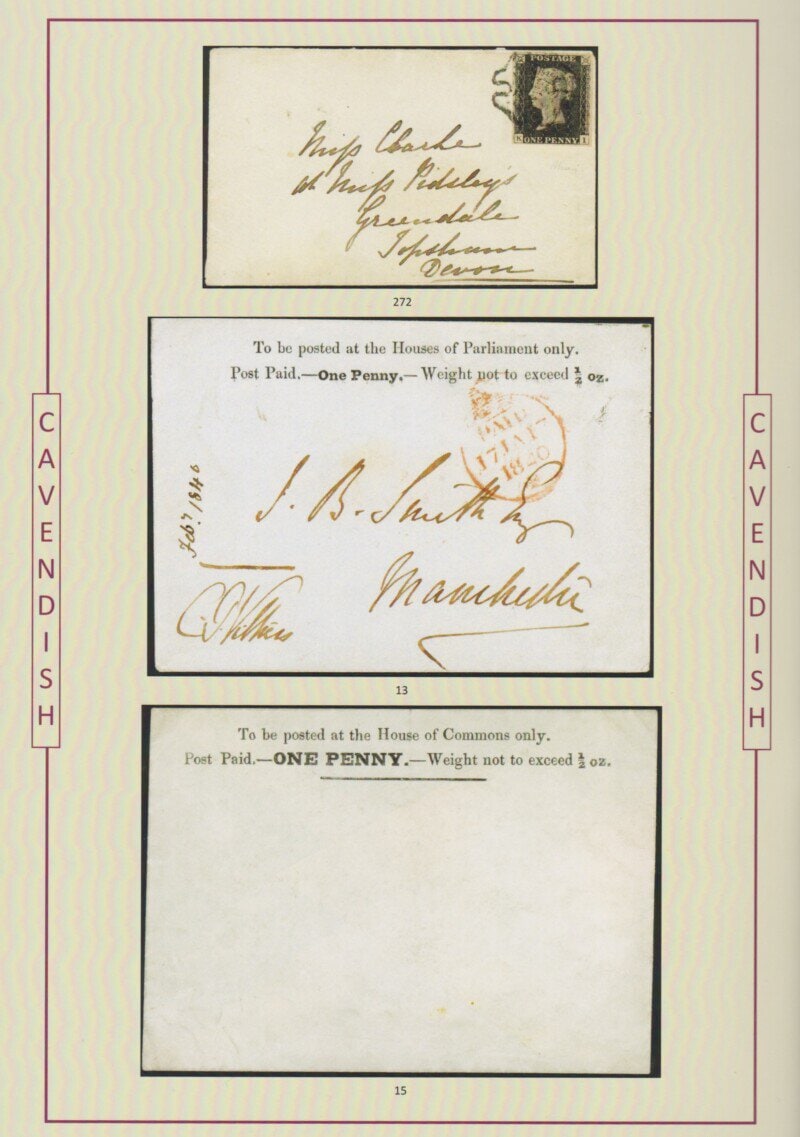 CAVENDISH
POSTAGE
K ONE PENNY I
Miss Clarke
at Miss Pidsley's
Greendale
Topsham
Devon
272
To be posted at the Houses of Parliament only.
Post Paid.—One Penny.—Weight not to exceed ½ oz.
PAID
17 JA 17
1840
Feby. 1840
J. B. Smith Esq
Manchester
C. P. Villiers
13
To be posted at the House of Commons only.
Post Paid.—ONE PENNY.—Weight not to exceed ½ oz.
15
CAVENDISH